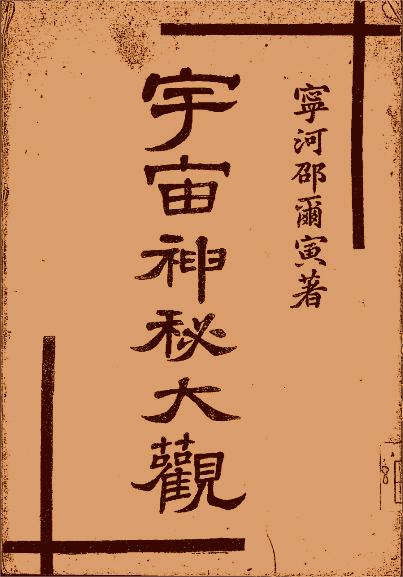 寧河邵爾寅著
宇宙神秘大觀